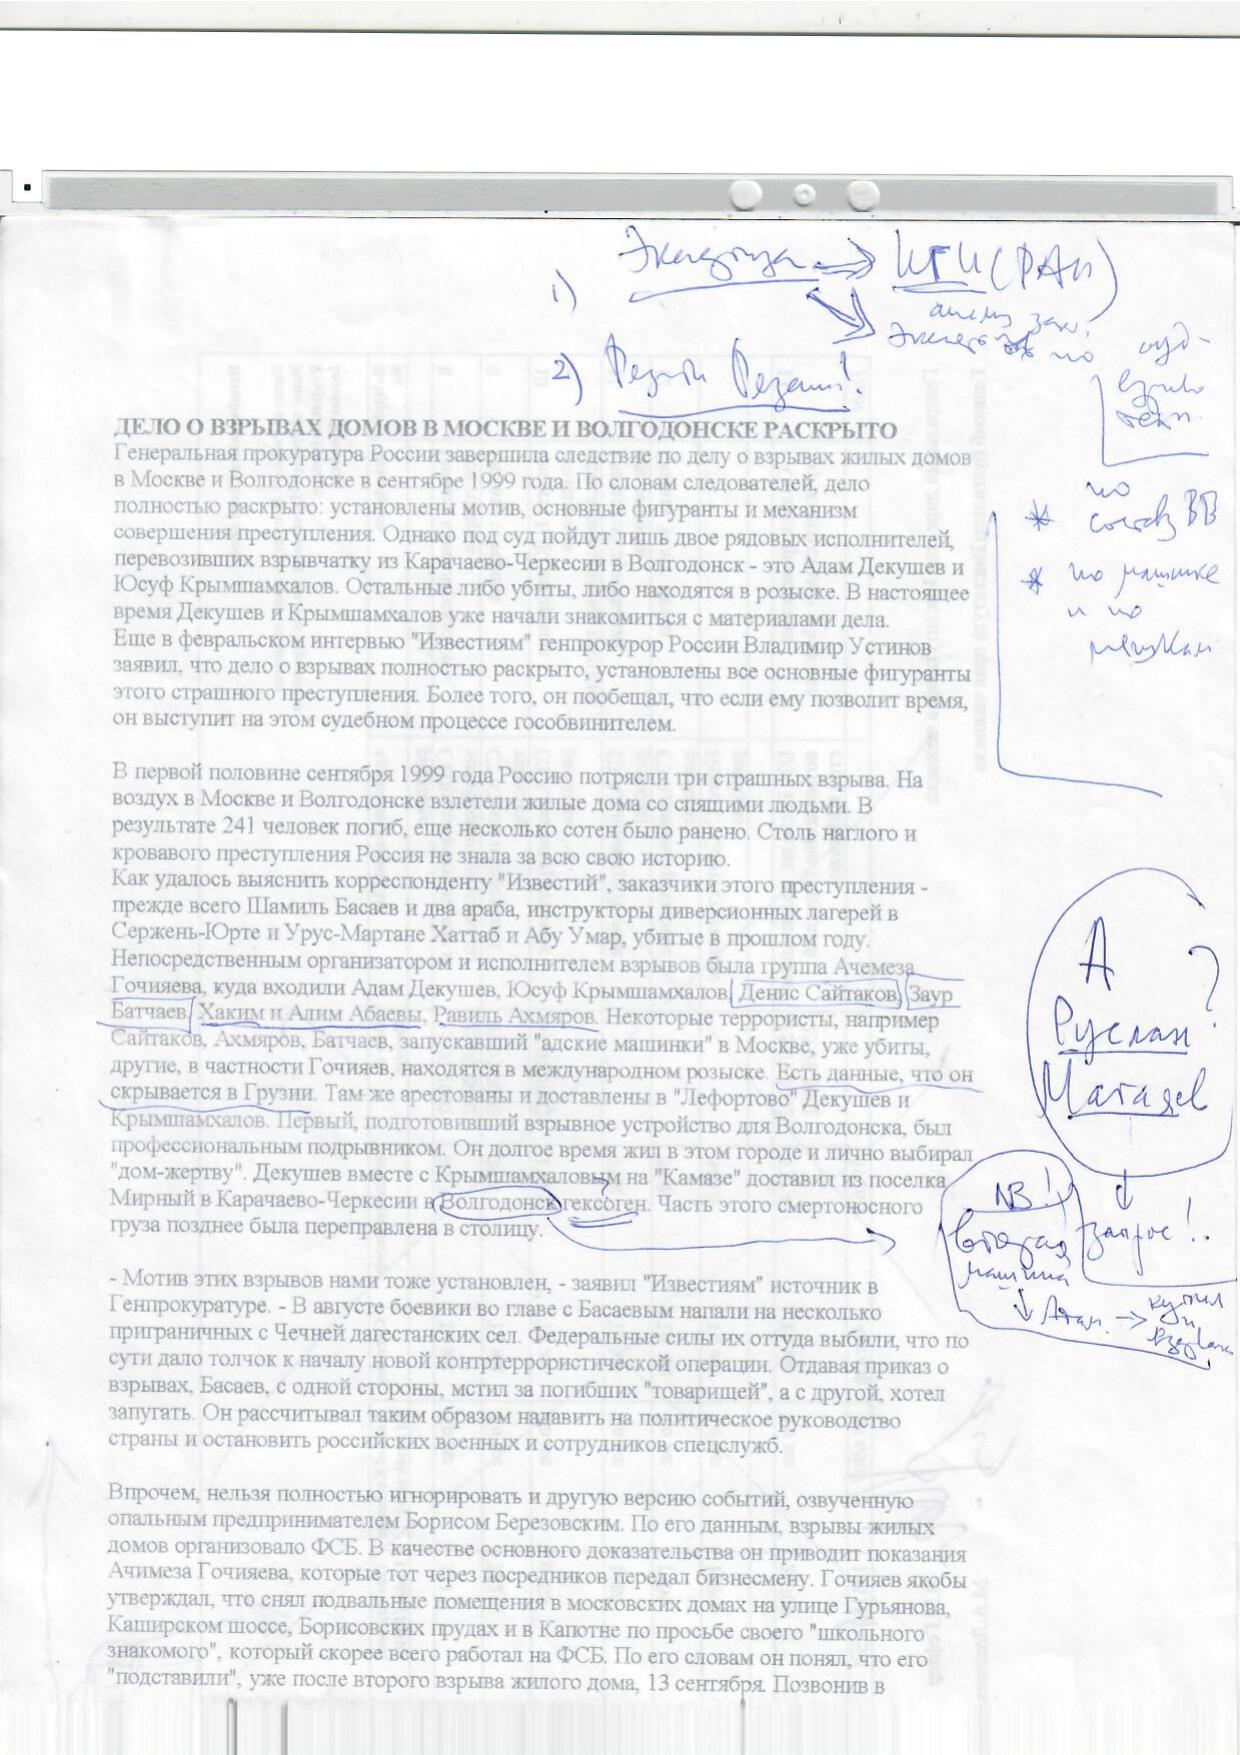 Экспертиза
ИГИ (РАН)
1)
2)
ДЕЛО О ВЗРЫВАХ ДОМОВ В МОСКВЕ И ВОЛГОДОНСКЕ РАСКРЫТО
Генеральная прокуратура России завершила следствие по делу о взрывах жилых домов
в Москве и Волгодонске в сентябре 1999 года. По словам следователей, дело
полностью раскрыто: установлены мотив, основные фигуранты и механизм
совершения преступления. Однако под суд пойдут лишь двое рядовых исполнителей,
перевозивших взрывчатку из Карачаево-Черкесии в Волгодонск - это Адам Декушев и
Юсуф Крымшамхалов. Остальные либо убиты, либо находятся в розыске. В настоящее
время Декушев и Крымшамхалов уже начали знакомиться с материалами дела.
Еще в февральском интервью "Известиям" генпрокурор России Владимир Устинов
заявил, что дело о взрывах полностью раскрыто, установлены все основные фигуранты
этого страшного преступления. Более того, он пообещал, что если ему позволит время,
он выступит на этом судебном процессе гособвинителем.
по
* составу ВВ
* по машине
и по
мешкам
В первой половине сентября 1999 года Россию потрясли три страшных взрыва. На
воздух в Москве и Волгодонске взлетели жилые дома со спящими людьми. В
результате 241 человек погиб, еще несколько сотен было ранено. Столь наглого и
кровавого преступления Россия не знала за всю свою историю.
Как удалось выяснить корреспонденту "Известий", заказчики этого преступления -
прежде всего Шамиль Басаев и два араба, инструкторы диверсионных лагерей в
Сержень-Юрте и Урус-Мартане Хаттаб и Абу Умар, убитые в прошлом году.
Непосредственным организатором и исполнителем взрывов была группа Ачемеза
Гочияева, куда входили Адам Декушев, Юсуф Крымшамхалов, Денис Сайтаков, Заур
Батчаев, Хаким и Алим Абаевы, Равиль Ахмяров. Некоторые террористы, например
Сайтаков, Ахмяров, Батчаев, запускавший "адские машинки" в Москве, уже убиты,
другие, в частности Гочияев, находятся в международном розыске. Есть данные, что он
скрывается в Грузии. Там же арестованы и доставлены в "Лефортово" Декушев и
Крымшамхалов. Первый, подготовивший взрывное устройство для Волгодонска, был
профессиональным подрывником. Он долгое время жил в этом городе и лично выбирал
"дом-жертву". Декушев вместе с Крымшамхаловым на "Камазе" доставил из поселка
Мирный в Карачаево-Черкесии в Волгодонск гексоген. Часть этого смертоносного
груза позднее была переправлена в столицу.
А
Руслан ?
Магаяев
запрос!
NB!
вторая
машина
Адам → купил
и
- Мотив этих взрывов нами тоже установлен, - заявил "Известиям" источник в
Генпрокуратуре. - В августе боевики во главе с Басаевым напали на несколько
приграничных с Чечней дагестанских сел. Федеральные силы их оттуда выбили, что по
сути дало толчок к началу новой контртеррористической операции. Отдавая приказ о
взрывах, Басаев, с одной стороны, мстил за погибших "товарищей", а с другой, хотел
запугать. Он рассчитывал таким образом надавить на политическое руководство
страны и остановить российских военных и сотрудников спецслужб.
Впрочем, нельзя полностью игнорировать и другую версию событий, озвученную
опальным предпринимателем Борисом Березовским. По его данным, взрывы жилых
домов организовало ФСБ. В качестве основного доказательства он приводит показания
Ачимеза Гочияева, которые тот через посредников передал бизнесмену. Гочияев якобы
утверждал, что снял подвальные помещения в московских домах на улице Гурьянова,
Каширском шоссе, Борисовских прудах и в Капотне по просьбе своего "школьного
знакомого", который скорее всего работал на ФСБ. По его словам он понял, что его
"подставили", уже после второго взрыва жилого дома, 13 сентября. Позвонив в